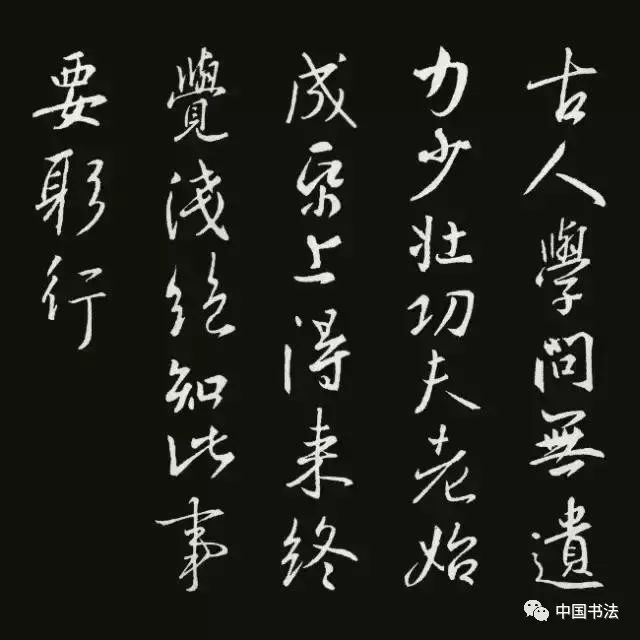 古人學問無遺
力少壯功夫老始
成帋上得来終
覺淺絕知此事
要躬行
中国书法